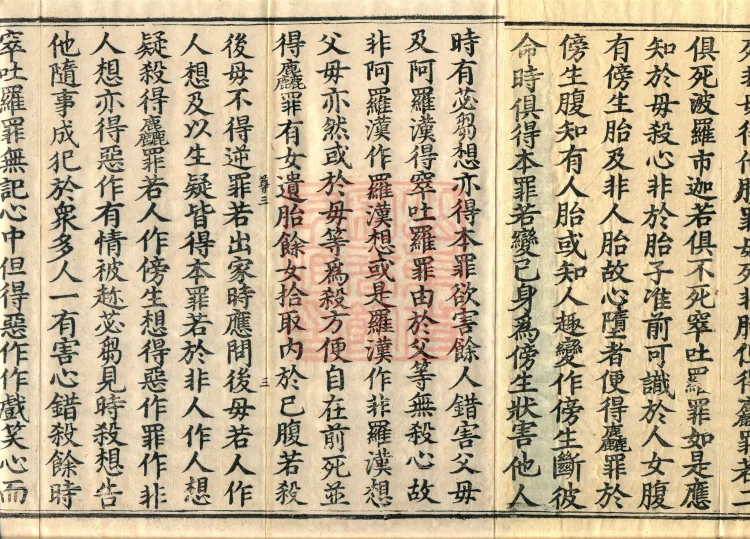 俱死波羅市迦若俱不死窣吐羅罪如是應
知於母殺心非於胎子准前可識於人女腹
有傍生胎及非人胎故心墮者便得麤罪於
傍生腹知有人胎或知人趣變作傍生斷彼
命時俱得本罪若變已身為傍生狀害他人
時有苾芻想亦得本罪欲害餘人錯害父母
及阿羅漢得窣吐羅罪由於父等無殺心故
非阿羅漢作羅漢想或是羅漢作非羅漢想
父母亦然或於母等為殺方便自在前死並
得麤罪有女遺胎餘女拾取內於已腹若殺
三
後母不得逆罪若出家時應問後母若人作
人想及以生疑皆得本罪若於非人作人想
疑殺得麤罪若人作傍生想得惡作罪作非
人想亦得惡作有情被趂苾芻見時殺想告
他隨事成犯於衆多人一有害心錯殺餘時
窣吐羅罪無記心中但得惡作作戲笑心而